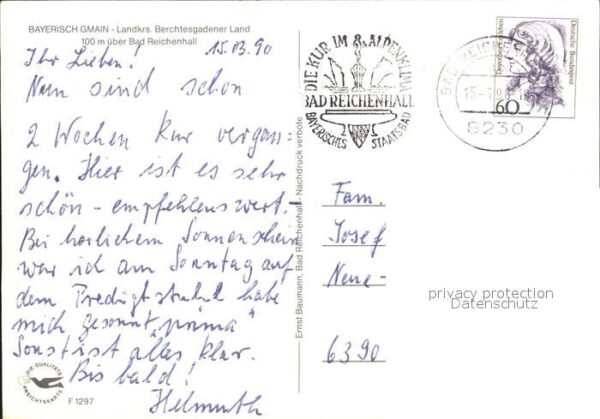 BAYERISCH GMAIN - Landkrs. Berchtesgadener Land
100 m über Bad Reichenhall
Ihr Lieben! 15.03.90
Nun sind schon
2 Wochen Kur vergan-
gen. Hier ist es sehr
schön - empfehlenswert.-
Bei herlichem Sonnenschein
war ich am Sonntag auf
dem Predigtstuhl habe
mich gesonnt "prima"
Sonst ist alles klar.
Bis bald!
Helmuth
DIE QUALITÄTS
ANSICHTSKARTE
F 1297
Ernst Baumann, Bad Reichenhall - Nachdruck verboten
DIE KUR IM ALPENKLIMA
BAD REICHENHALL
BAYERISCHES STAATSBAD
BAD REICHENHALL
8230
Deutsche Bundespost
60
Fam.
Josef
Neue-
6390
privacy protection
Datenschutz